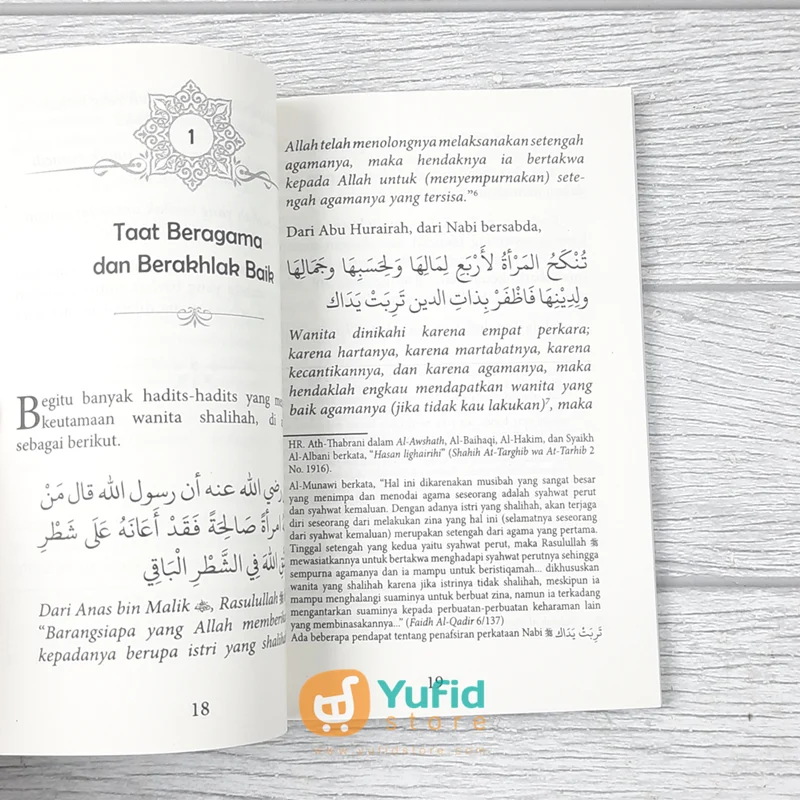 1
Taat Beragama
dan Berakhlak Baik
Begitu banyak hadits-hadits yang
keutamaan wanita shalihah, di
sebagai berikut.
رضي الله عنه أن رسول الله قال مَنْ
امرأةً صَالِحَةً فَقَدْ أَعَانَهُ عَلَى شَطْرِ
اللهَ فِي الشَّطْرِ الْبَاقِي
Dari Anas bin Malik ﷺ, Rasulullah
“Barangsiapa yang Allah
kepadanya berupa istri yang
18
Allah telah menolongnya melaksanakan setengah
agamanya, maka hendaknya ia bertakwa
kepada Allah untuk (menyempurnakan) sete-
ngah agamanya yang tersisa.”6
Dari Abu Hurairah, dari Nabi bersabda,
تُنْكَحُ المَرْأَةُ لأَرْبَعٍ لِمَالِهَا وَلِحَسَبِهَا وَجَمَالِهَا
ولِدِيْنِهَا فَاظْفَرْ بِذَاتِ الدين تَرِبَتْ يَدَاك
Wanita dinikahi karena empat perkara;
karena hartanya, karena martabatnya, karena
kecantikannya, dan karena agamanya, maka
hendaklah engkau mendapatkan wanita yang
baik agamanya (jika tidak kau lakukan)7, maka
HR. Ath-Thabrani dalam Al-Awshath, Al-Baihaqi, Al-Hakim, dan Syaikh
Al-Albani berkata, “Hasan lighairihi” (Shahih At-Targhib wa At-Tarhib 2
No. 1916).
Al-Munawi berkata, “Hal ini dikarenakan musibah yang sangat besar
yang menimpa dan menodai agama seseorang adalah syahwat perut
dan syahwat kemaluan. Dengan adanya istri yang shalihah, akan terjaga
diri seseorang dari melakukan zina yang hal ini (selamatnya seseorang
dari syahwat kemaluan) merupakan setengah dari agama yang pertama.
Tinggal setengah yang kedua yaitu syahwat perut, maka Rasulullah ﷺ
mewasiatkannya untuk bertakwa menghadapi syahwat perutnya sehingga
sempurna agamanya dan ia mampu untuk beristiqamah... dikhususkan
wanita yang shalihah karena jika istrinya tidak shalihah, meskipun ia
mampu menghalangi suaminya untuk berbuat zina, namun ia terkadang
mengantarkan suaminya kepada perbuatan-perbuatan keharaman lain
yang membinasakannya...” (Faidh Al-Qadir 6/137)
Ada beberapa pendapat tentang penafsiran perkataan Nabi ﷺ تَرِبَتْ يَدَاك
19
Yufid
store
www.yufidstore.com